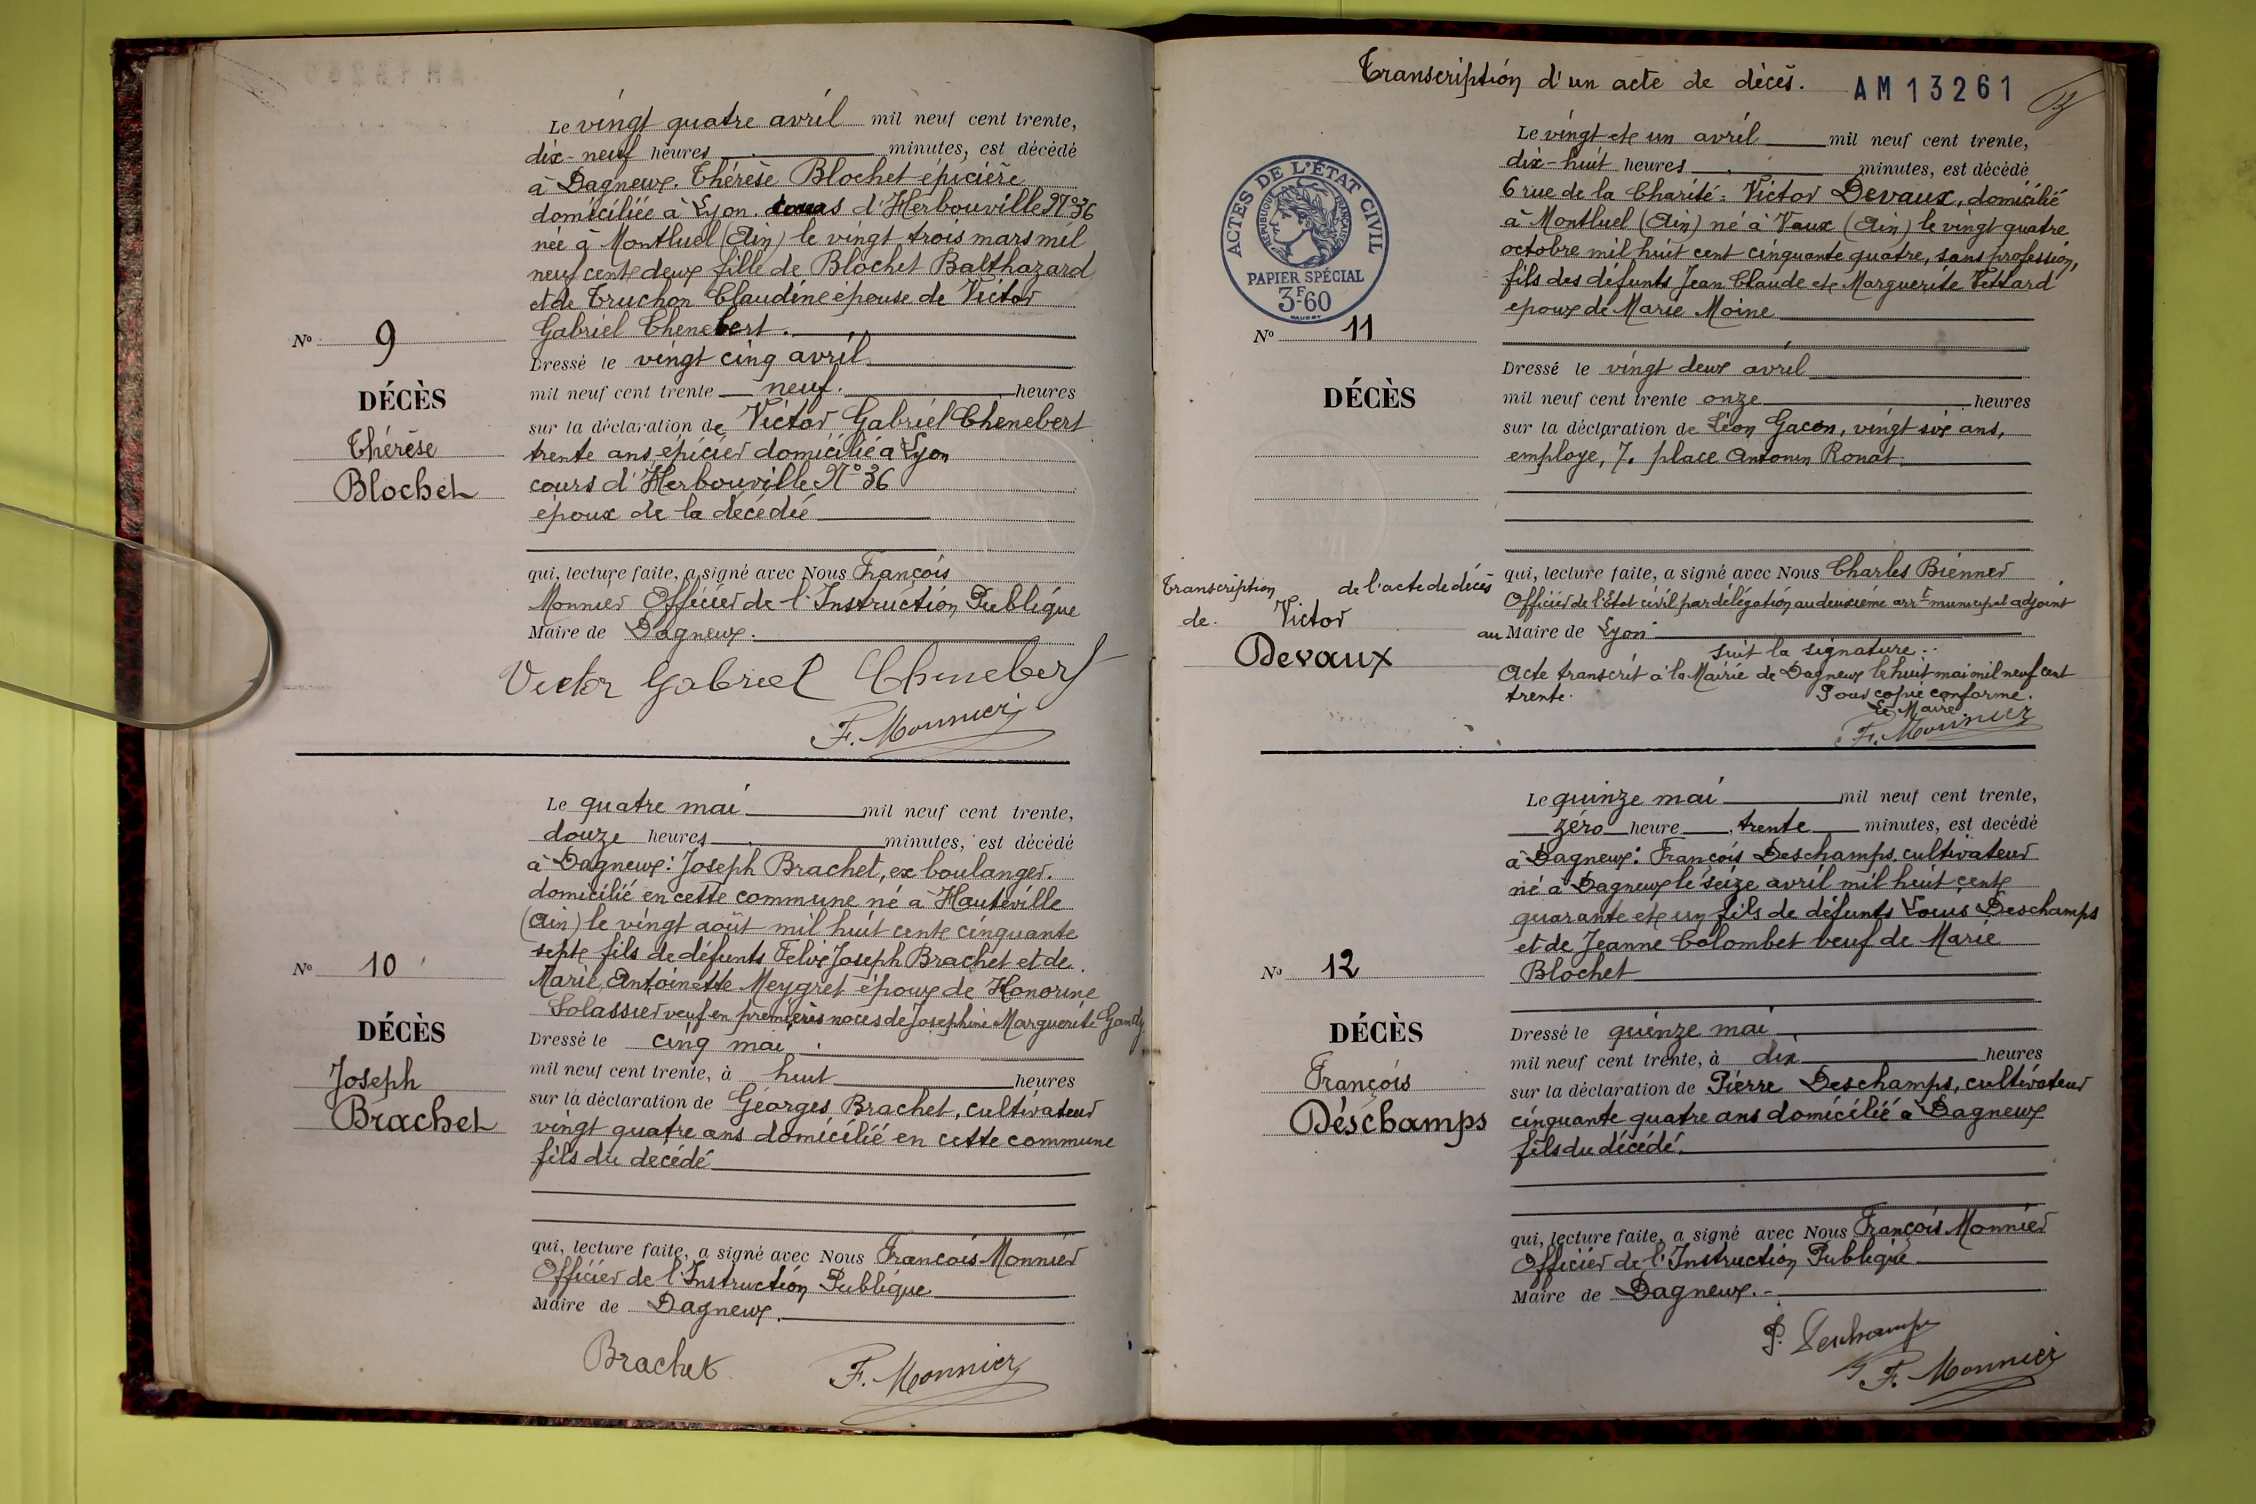 Le vingt quatre avril mil neuf cent trente,
dix-neuf heures minutes, est décédé
à Dagneux. Thérèse Blochet épicière
domiciliée à Lyon. cours d'Herbouville N° 36
née à Montluel (Ain) le vingt trois mars mil
neuf cent deux fille de Blochet Balthazard
et de Truchon Claudine épouse de Victor
Gabriel Chenebert.
N° 9
Dressé le vingt cinq avril
mil neuf cent trente neuf. heures
DÉCÈS
sur la déclaration de Victor Gabriel Chènebert
Thérèse
trente ans, épicier domicilié à Lyon
Blochet
cours d'Herbouville N° 36
époux de la décédée
qui, lecture faite, a signé avec Nous François
Monnier Officier de l'Instruction Publique
Maire de Dagneux.
Victor Gabriel Chenebert
F. Monnier
Le quatre mai mil neuf cent trente,
douze heures minutes, est décédé
à Dagneux: Joseph Brachet, ex boulanger.
domicilié en cette commune né à Hauteville
(Ain) le vingt août mil huit cent cinquante
sept fils de défunts Felix Joseph Brachet et de
N° 10
Marie Antoinette Meygret époux de Honorine
Solassier veuf en premières noces de Joséphine Marguerite Gandy
DÉCÈS
Dressé le cinq mai
mil neuf cent trente, à huit heures
Joseph
sur la déclaration de Géorges Brachet, cultivateur
Brachet
vingt quatre ans domicilié en cette commune
fils du decédé
qui, lecture faite, a signé avec Nous François Monnier
Officier de l'Instruction Publique
Maire de Dagneux.
Brachet
F. Monnier
Transcription d'un acte de décès. AM13261
Le vingt et un avril mil neuf cent trente,
dix-huit heures minutes, est décédé
6 rue de la Charité: Victor Devaux, domicilié
à Montluel (Ain) né à Vaux (Ain) le vingt quatre
octobre mil huit cent cinquante quatre, sans profession,
fils des défunts Jean Claude et Marguerite
époux de Marie Moine
ACTES DE L'ÉTAT CIVIL
RÉPUBLIQUE FRANÇAISE
PAPIER SPÉCIAL
3F60
N° 11
Dressé le vingt deux avril
DÉCÈS
mil neuf cent trente onze heures
sur la déclaration de Léon Gacon, vingt six ans,
employe, 7. place Antonin Ronat.
qui, lecture faite, a signé avec Nous Charles Bienner
Transcription de l'acte de décès
Officier de l'Etat civil par délégation au deuxième arrt municipal adjoint
de. Victor
au Maire de Lyon
Devaux
suit la signature..
Acte transcrit à la Mairie de Dagneux le huit mai mil neuf cent
trente. Pour copie conforme.
Le Maire
F. Monnier
Le quinze mai mil neuf cent trente,
zéro heure trente minutes, est decédé
à Dagneux: François Deschamps, cultivateur
né à Dagneux le seize avril mil huit cent
quarante et un fils de défunts Louis Deschamps
et de Jeanne Colombet veuf de Marie
N° 12
Blochet
DÉCÈS
Dressé le quinze mai
mil neuf cent trente, à dix heures
François
sur la déclaration de Pierre Deschamps, cultivateur
Déschamps
cinquante quatre ans domicilié à Dagneux
fils du décédé.
qui, lecture faite, a signé avec Nous François Monnier
Officier de l'Instruction Publique
Maire de Dagneux.
P. Deschamps
F. Monnier